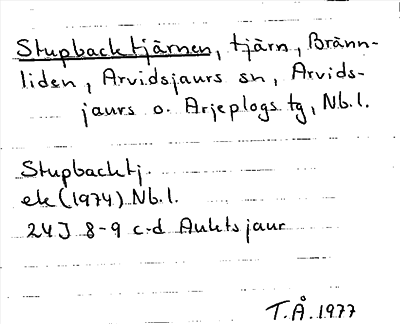 Stupbacktjärnen, tjärn, Bränn-
liden, Arvidsjaurs sn, Arvids-
jaurs o. Arjeplogs tg, Nb.l.
Stupbacktj.
ek (1974) Nb.l.
24J 8-9 c-d Auktsjaur
T.Å. 1977